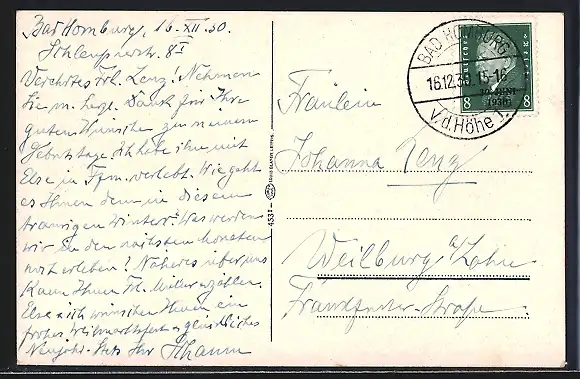 Bad Homburg, 16. XII. 30.
Verehrtes Frl. Lenz! Nehmen
Sie m. herzl. Dank für Ihre
guten Wünsche zu meinem
Geburtstage. Ich habe ihn mit
Else in Ffm. verlebt. Wie geht
es Ihnen denn in diesem
traurigen Winter? Was werden
wir in den nächsten Monaten
noch erleben? Näheres über uns
kann Ihnen Frl. Müller erzählen.
Else u. ich wünschen Ihnen ein
frohes Weihnachtsfest u. glückliches
Neujahr. Stets Ihr
4533
BAD HOMBURG
16.12.30.15-16
v.d.Höhe 1
30. JUNI
1930
8 8
Fräulein
Johanna Lenz
Weilburg a/Lahn.
Frankfurter-Straße.